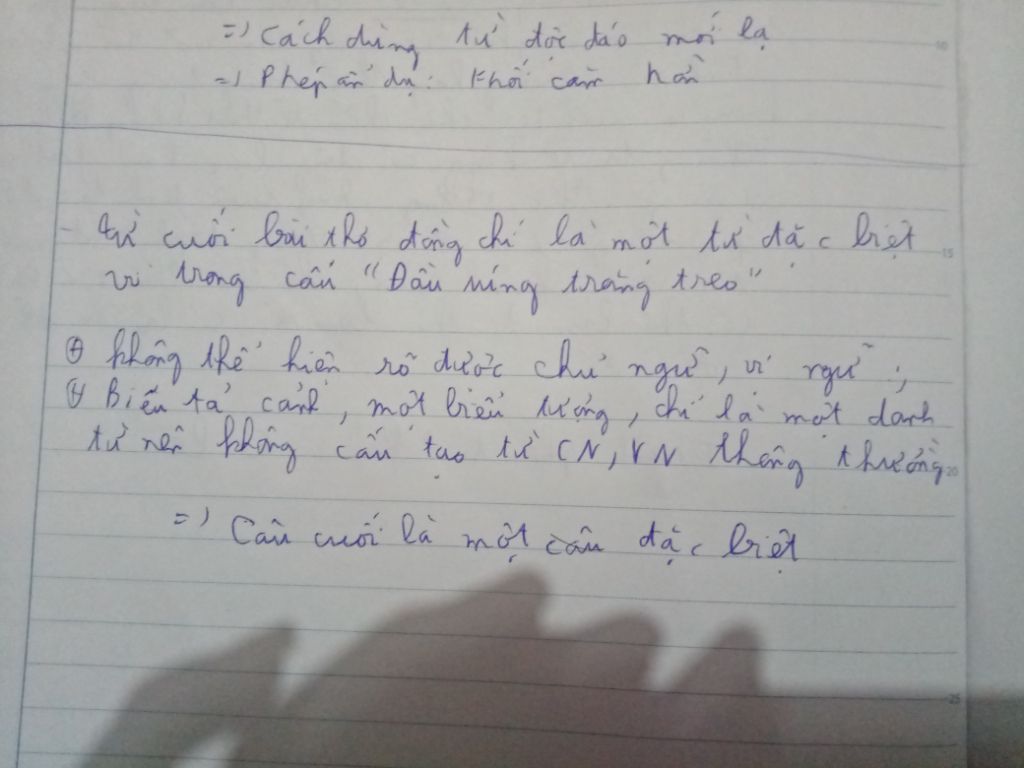 =) Cách dùng từ độc đáo mới lạ
=) Phép ẩn dụ: khối căm hờn
- Từ cuối bài thơ đồng chí là một từ đặc biệt
vì trong câu "Đầu súng trăng treo"
⊕ không thể hiện rõ được chủ ngữ, vị ngữ;
⊕ Biểu tả cảnh, một biểu tượng, chỉ là một danh
từ nên không cấu tạo từ CN, VN thông thường
=) Câu cuối là một câu đặc biệt